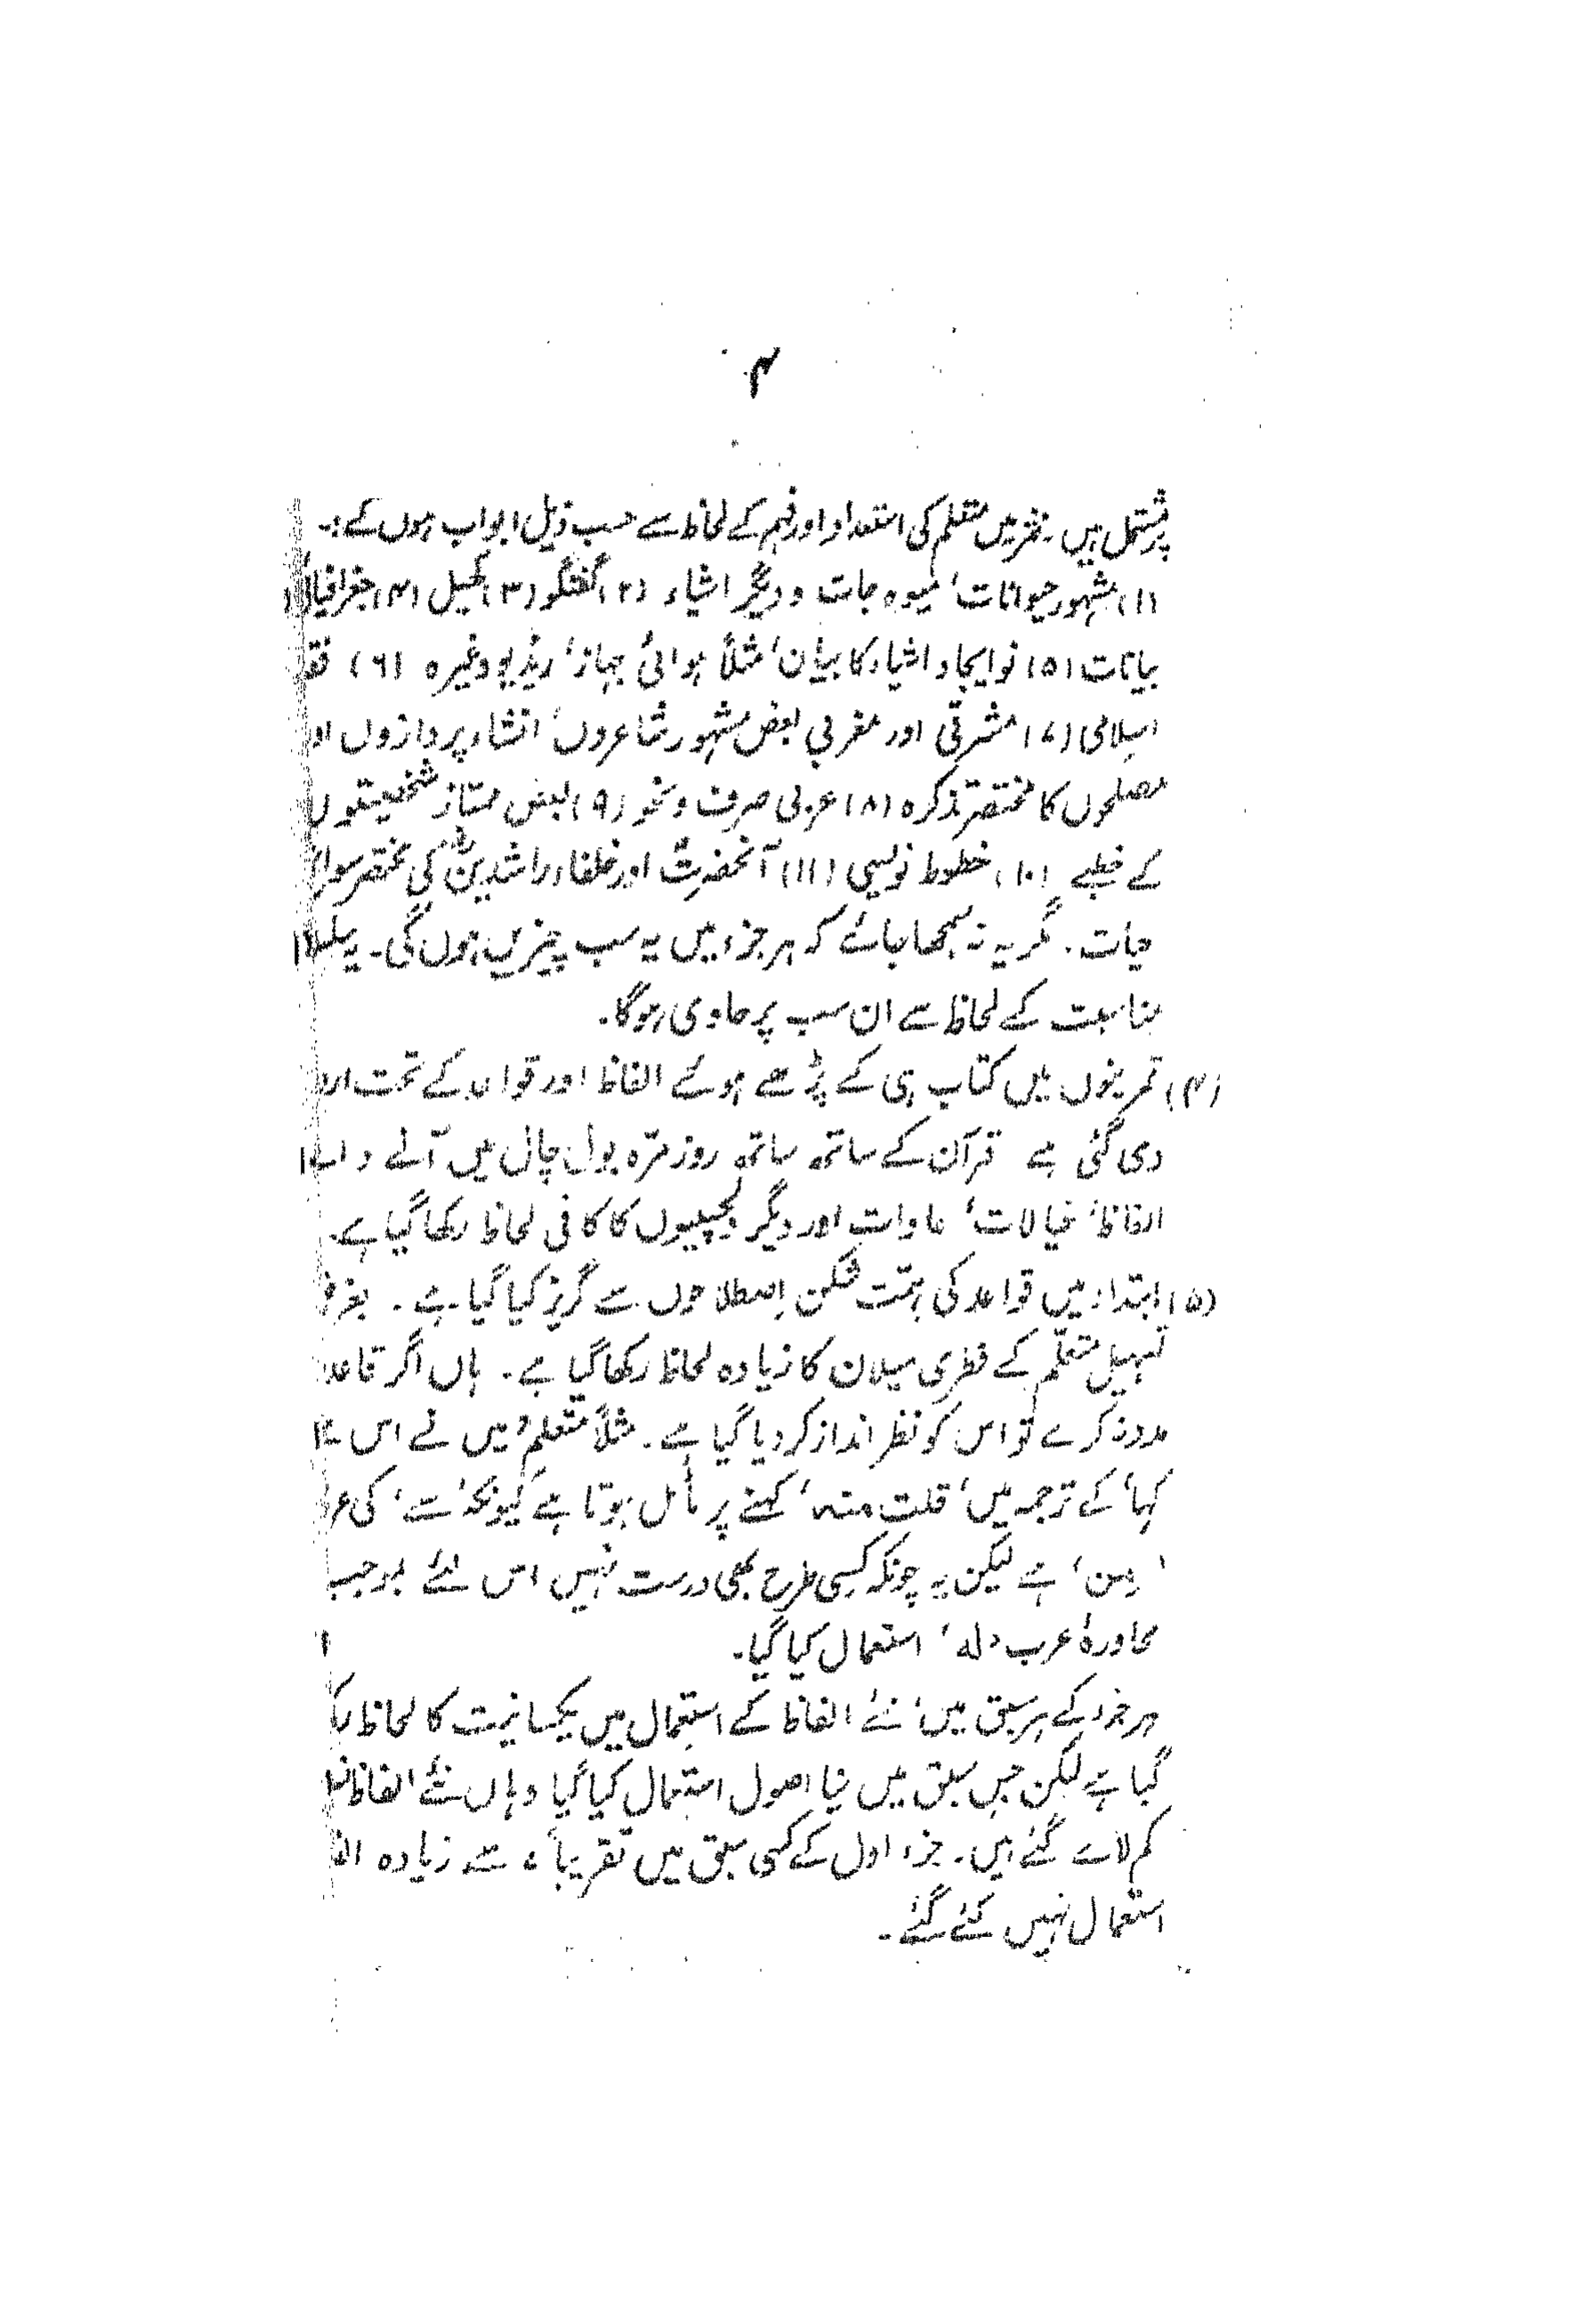 ۴
پر مشتمل ہیں۔ نثر میں متعلم کی استعداد اور فہم کے لحاظ سے حسب ذیل ابواب ہوں گے:۔
(۱) مشہور حیوانات، میوہ جات و دیگر اشیاء (۲) گفتگو (۳) کھیل (۴) جغرافیائی
بیانات (۵) نو ایجاد اشیاء کا بیان، مثلاً ہوائی جہاز، ریڈیو وغیرہ (۶)
اسلامی (۷) مشرقی اور مغربی بعض مشہور شاعروں، انشاء پردازوں
مصلحوں کا مختصر تذکرہ (۸) عربی صرف و نحو (۹) بعض ممتاز شخصیتوں
کے خطبے (۱۰) خطوط نویسی (۱۱) آنحضرتؐ اور خلفاء راشدینؓ کی مختصر
حیات۔ مگر یہ نہ سمجھا جائے کہ ہر جزء میں یہ سب چیزیں ہوں گی۔ یہ
مناسبت کے لحاظ سے ان سب پر حاوی ہوگا۔
(۴) تمرینوں میں کتاب ہی کے پڑھے ہوئے الفاظ اور قواعد کے تحت
دی گئی ہے قرآن کے ساتھ ساتھ روز مرّہ بول چال میں آنے والے
الفاظ، خیالات، عادات اور دیگر دلچسپیوں کا کافی لحاظ رکھا گیا ہے۔
(۵) ابتداء میں قواعد کی ہمّت شکن اِصطلاحوں سے گریز کیا گیا ہے۔ بغرض
تسہیل متعلّم کے فطری میلان کا زیادہ لحاظ رکھا گیا ہے۔ ہاں اگر قاعدہ
مدد نہ کرے تو اس کو نظر انداز کر دیا گیا ہے۔ مثلاً متعلم 'میں نے اس
کہا' کے ترجمہ میں 'قلت منہ' کہنے پر مائل ہوتا ہے کیونکہ 'سے' کی
'مِن' ہے لیکن یہ چونکہ کسی طرح بھی درست نہیں اس لئے بموجب
محاورۂ عرب 'لہ' استعمال کیا گیا۔
ہر جزء کے ہر سبق میں، نئے الفاظ کے استعمال میں یکسانیت کا لحاظ
گیا ہے لیکن جس سبق میں نیا اصول استعمال کیا گیا وہاں نئے الفاظ
کم لائے گئے ہیں۔ جزء اول کے کسی سبق میں تقریباً ۷ سے زیادہ
استعمال نہیں کئے گئے۔